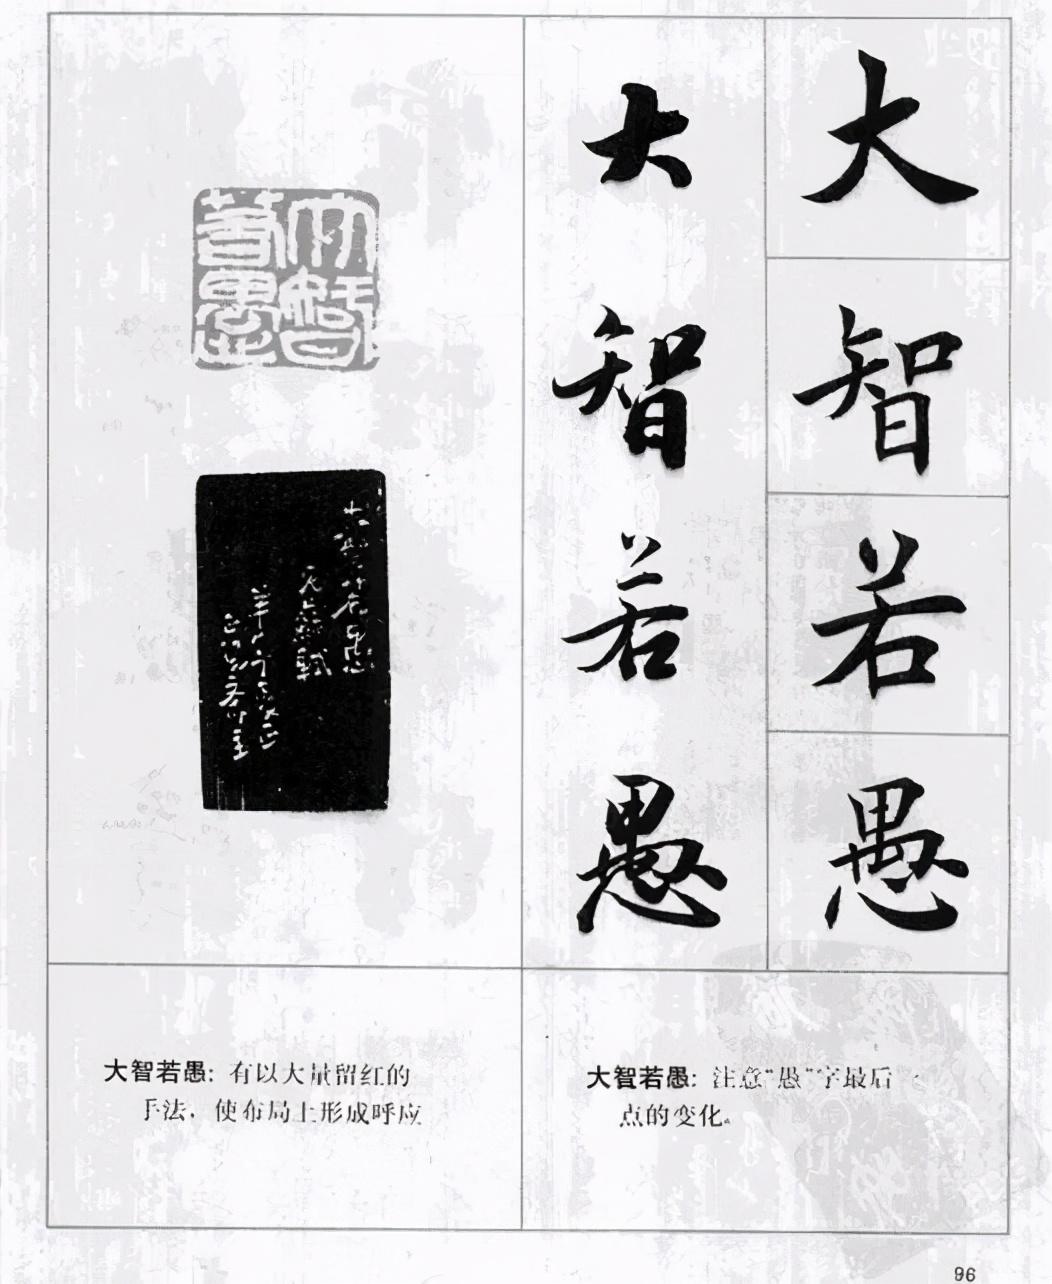 大
智
若
愚
大
智
若
愚
大智
若愚
大智若愚
大智若愚：有以大量留红的
手法，使布局上形成呼应
大智若愚：注意“愚”字最后一
点的变化。
96